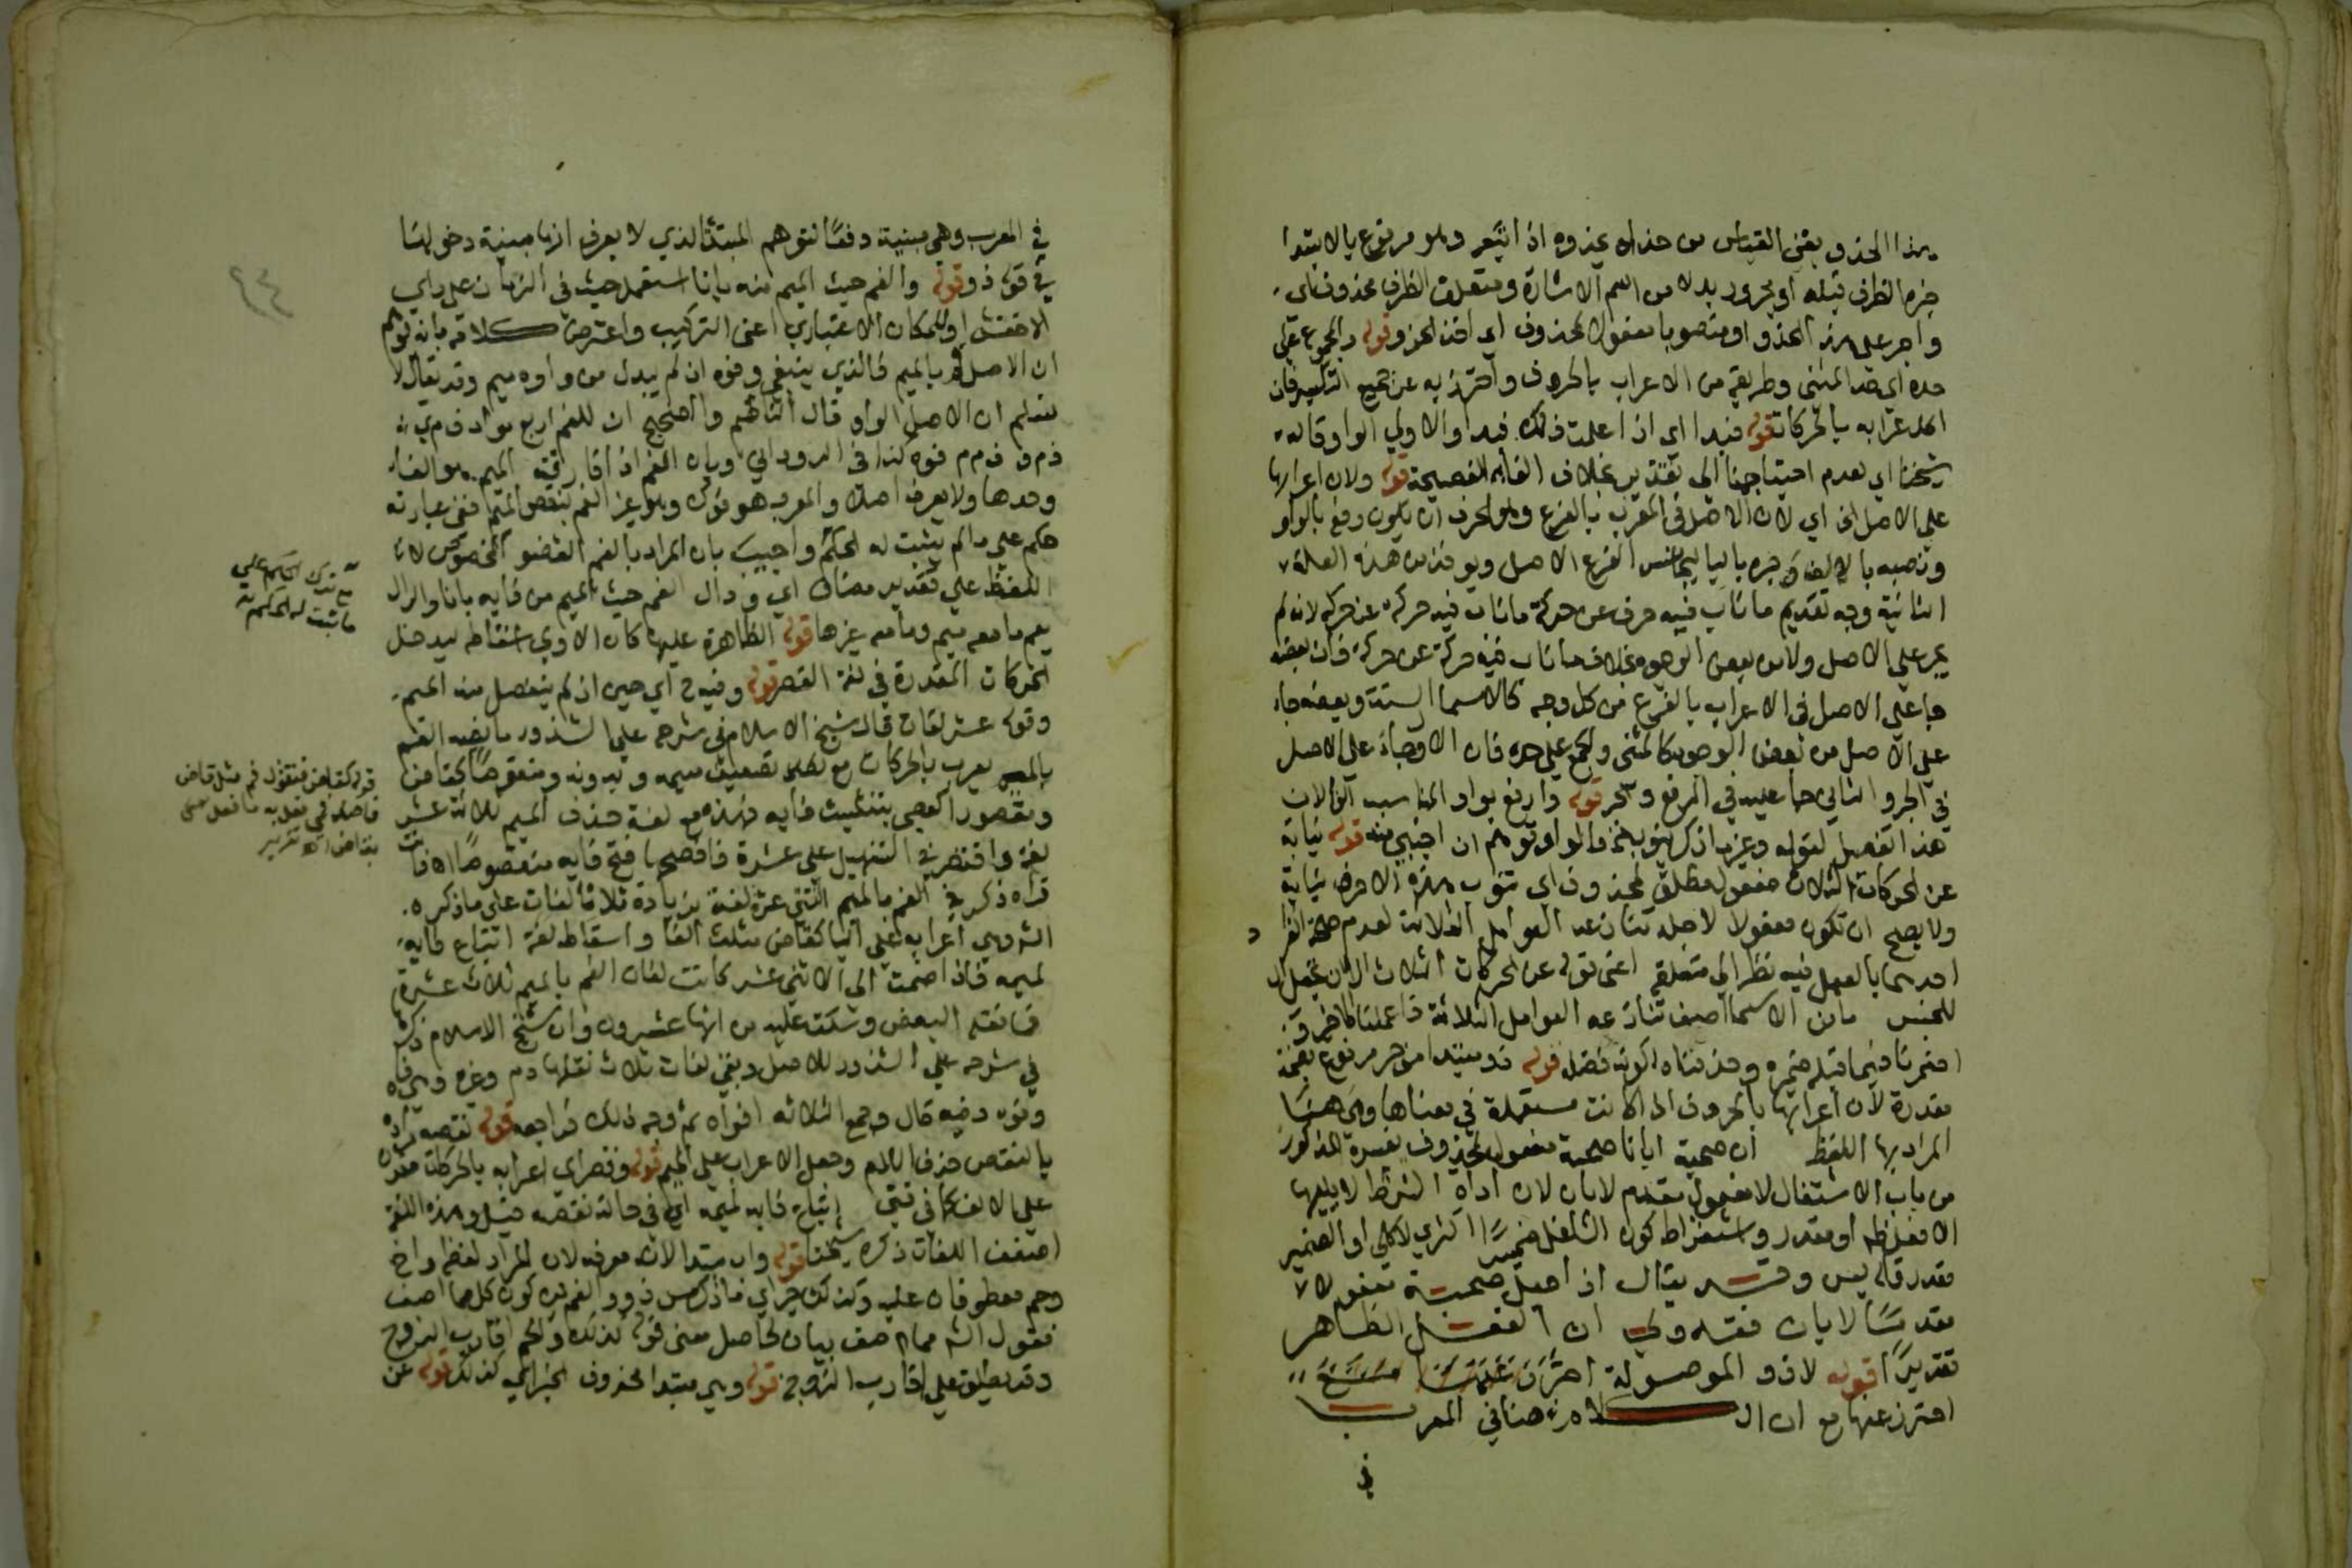 هذا الحذو يقتفي القياس من حذاه يحذوه اذا اتبعه وهو مرفوع بالابتدا
خبره الظرف قبله او مجرور بدلا من اسم الاشارة ومتعلق الظرف محذوف اي
واجر على هذا الحذو او منصوبا مفعولا لمحذوف اي احذ الحذو قوله والمجموع على
حده اي حد المثنى وطريقه من الاعراب بالحروف واحترز به عن جمع التكسير فان
اعرابه بالحركات قوله فبدا اي اذا علمت ذلك فبدا والاولى الواو قاله
شيخنا اي لعدم احتياجها الى تقدير بخلاف الفاء الفصيحة قوله ولان اعرابها
على الاصل الخ اي لان الاصل في المعرب بالفرع وهو الحرف ان يكون رفعه بالواو
ونصبه بالالف وجره باليا ليجانس الفرع الاصل ويوخذ من هذه العلة
الثانية وجه تقديم ما ناب فيه حرف عن حركة ما ناب فيه حركة عن حركة لانه لم
يجر على الاصل ولا من بعض الوجوه بخلاف ما ناب فيه حركة عن حركة فان بعضه
جا على الاصل في الاعراب بالفرع من كل وجه كالاسما الستة وبعضه جاء
على الاصل من بعض الوجوه كالمثنى والجمع على حده فان الاول جاء على الاصل
في الجر والثاني جا عليه في الرفع والجر قوله وارفع بواو المناسب
هذا التفصيل لقوله وغير ما ذكر ينوب
عن الحركات الثلاث مفعول مطلق لمحذوف اي تنوب هذه الاحرف نيابة
ولا يصح ان تكون مفعولا لاجله تنازعه العوامل الثلاثة لعدم
احدهما بالعمل فيه نظرا لمتعلقه اعني قوله عن الحركات الثلاث
للجنس ما من الاسما اصف تنازعه العوامل الثلاثة فاعملنا الاخير
اضمرنا فيما قبله ضميره وحذفناه لكونه فضلة قوله ذو مبتدا موخر مرفوع بضمة
مقدرة لان اعرابها بالحروف اذا كانت مستعملة في معناها وهي هنا
المراد بها اللفظ ان صحبة ابانا صحبة مفعول لمحذوف يفسره المذكور
من باب الاشتغال لا مفعول مقدم لابان لان اداة الشرط لا يليها
الا فعل لفظه او مقدر واشتراط كون الشاغل ضميرا اكثري لا كلي او الضمير
مقدر قاله يس وقد يقال اذا جعل صحبة مفعولا
مقدما لابان فقد ولي ان الفعل الظاهر
تقديرا قوله لا ذو الموصولة
احترز عنها مع ان الكلام هنا في المعرب
في
في المعرب وهي مبنية دفعا لتوهم المبتدئ الذي لا يعرف انها مبنية دخولها
في قوله ذو قوله والفم حيث الميم منه بانا استعمل حيث في الزمان على راي
الاخفش او للمكان الاعتباري اعني التركيب واعترض كلامه بانه يوهم
ان الاصل فم بالميم فالذي ينبغي وفوه ان لم يبدل من واوه ميم وقد يقال لا
نسلم ان الاصل الواو قال الناظم والصحيح ان للفم اربع مواد ف م ي
ف م و ف م م ف و ه كذا في الروداني وبان الفم اذا فارقته الميم هو الفاء
وحدها ولا يعرف اصلا والمعرب هو فوك وهو غير الفم بنقص الميم ففي عبارته
حكم على ما لم يثبت له الحكم واجيب بان المراد بالفم العضو المخصوص لا
اللفظ على تقدير مضاف اي ودال الفم حيث الميم من فايه بانا والدال
يعم ما معه ميم وما معه غيرها قوله الظاهرة عليها كان الاولى اسقاطه ليدخل
الحركات المقدرة في لغة القصر قوله وفيه ح اي حين اذ لم ينفصل منه الميم
وقوله عشر لغات قال شيخ الاسلام في شرحه على الشذور ما نصه الفم
بالميم يعرب بالحركات مع تضعيف ميمه وبدونه ومنقوصا كقاض
ومقصورا كعصى بتثليث فايه فهذه مع لغة حذف الميم ثلاثة عشر
لغة واقتصر في التسهيل على عشرة فافصحها فتح فايه منقوصا
تراه ذكر في الفم بالميم اثنتي عشرة لغة بزيادة ثلاث لغات على ما ذكره
الش وهي اعرابه على اليا كقاض مثلث الفا واسقاط لغة اتباع فايه
لميمه فاذا ضمت الى الاثني عشر كانت لغات الفم بالميم ثلاث عشرة
فما نقله البعض وسكت عليه من انها عشرون وان شيخ الاسلام ذكره
في شرحه على الشذور لا اصل وبقي لغات ثلاث نقلها دم وغيره وهي فاه
وفوه وفيه قال وجمع الثلاثة افواه ثم وجه ذلك فراجعه قوله نقصه مراده
بالنقص حذف اللام وجعل الاعراب على الميم قوله وقصر اي اعرابه بالحركات مقدرة
على الالف كما في فتى اتباع فايه لميمه اي في حالة نقصه قيل وهذه اللغة
اضعف اللغات ذكره شيخنا قوله واب مبتدا لانه معرفة لان المراد لفظه واخ
وحم معطوفان عليه وكذلك خبر اي فما ذكر من ذو والفم في كون كل مما اصف
فقول الش مما اصف بيان لحاصل معنى قوله كذلك والحم اقارب الزوج
وقد يطلق على اقارب الزوجة قوله وهن مبتدا محذوف الخبر اي كذلك قوله عن
ما ثبت له الحكم
قوله كقاض فتقول فم مثل قاض